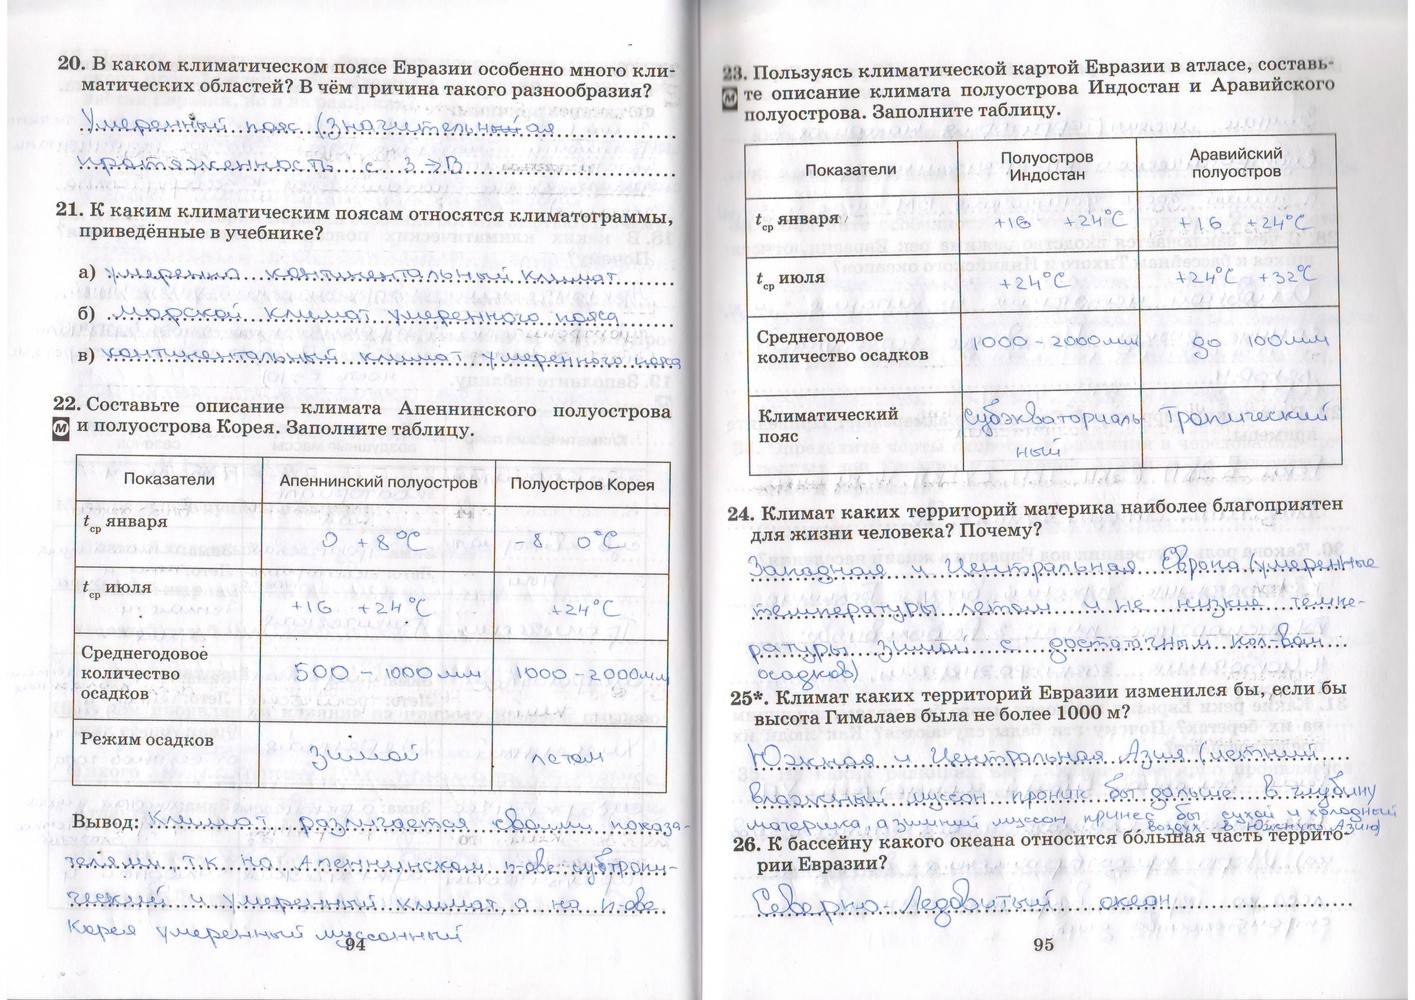 20. В каком климатическом поясе Евразии особенно много кли-
матических областей? В чём причина такого разнообразия?
Умеренный пояс (значительная
протяженность с З → В
21. К каким климатическим поясам относятся климатограммы,
приведённые в учебнике?
а) умеренно континентальный климат
б) морской климат умеренного пояса
в) континентальный климат умеренного пояса
22. Составьте описание климата Апеннинского полуострова
М и полуострова Корея. Заполните таблицу.
Показатели Апеннинский полуостров Полуостров Корея
tср января 0 +8°С -8 0°С
tср июля +16 +24°С +24°С
Среднегодовое
количество 500 - 1000 мм 1000 - 2000 мм
осадков
Режим осадков зимой летом
Вывод: Климат различается своими показа-
телями т.к. на Апеннинском п-ове субтропи-
ческий и умеренный климат, а на п-ове
Корея умеренный муссонный
94
23. Пользуясь климатической картой Евразии в атласе, составь-
М те описание климата полуострова Индостан и Аравийского
полуострова. Заполните таблицу.
Показатели Полуостров Индостан Аравийский полуостров
tср января +16 +24°С +16 +24°С
tср июля +24°С +24°С +32°С
Среднегодовое
количество осадков 1000 - 2000 мм до 100 мм
Климатический
пояс Субэкваториаль ный Тропический
24. Климат каких территорий материка наиболее благоприятен
для жизни человека? Почему?
Западная и Центральная Европа (умеренные
температуры летом и не низкие темпе-
ратуры зимой с достаточным кол-вом
осадков)
25*. Климат каких территорий Евразии изменился бы, если бы
высота Гималаев была не более 1000 м?
Южная и Центральная Азия (летний
влажный муссон проник бы дальше в глубину
материка, а зимний муссон принес бы сухой и холодный
воздух в Южную Азию)
26. К бассейну какого океана относится бо́льшая часть террито-
рии Евразии?
Северно Ледовитый океан
95